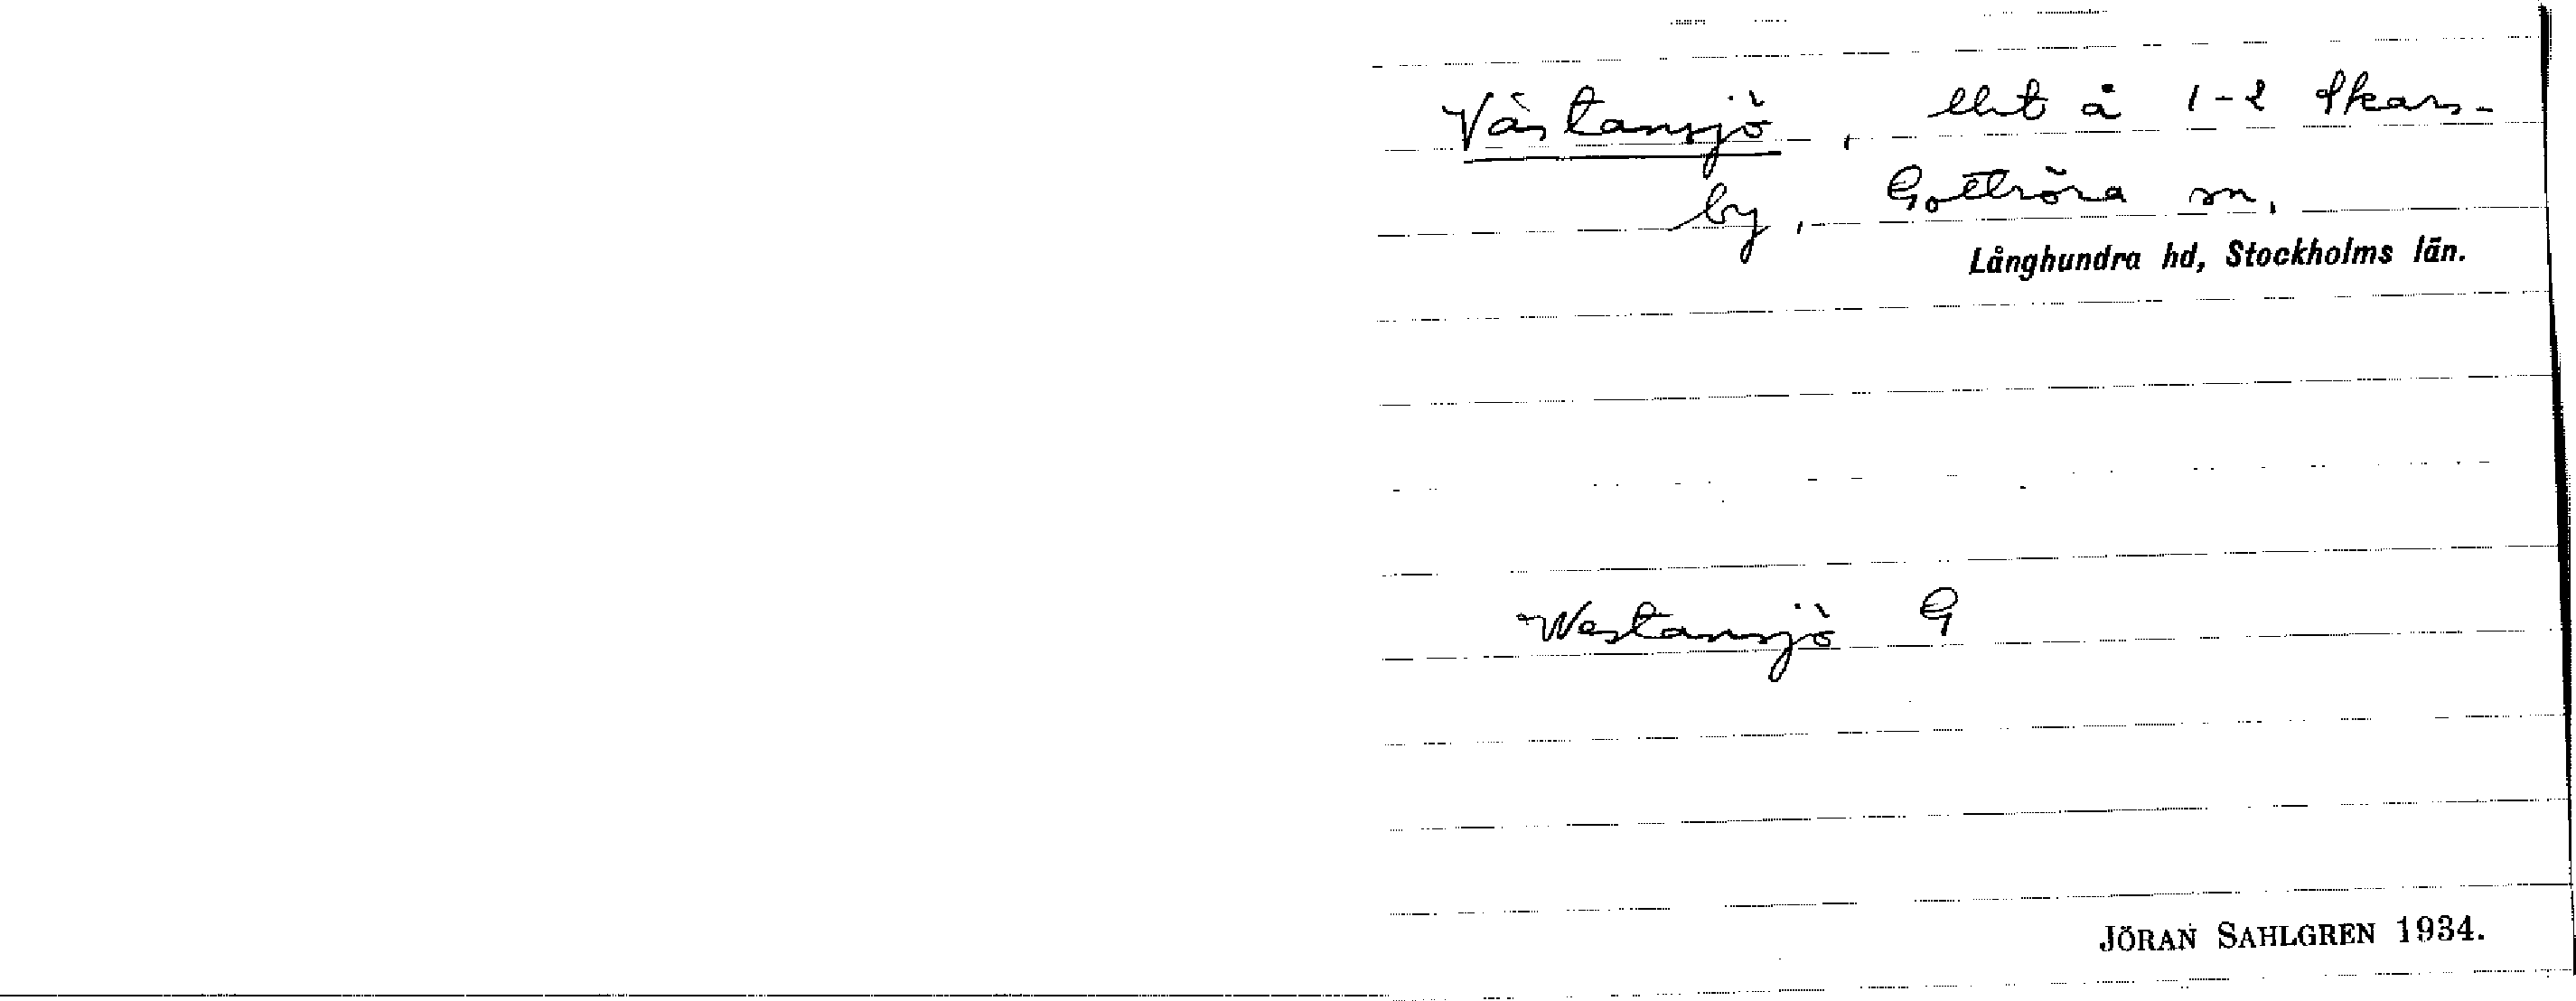 Västansjö, lht å 1-2 Skars-
by, Gottröra sn,
Långhundra hd, Stockholms län.
Westansjö G
JÖRAN SAHLGREN 1934.